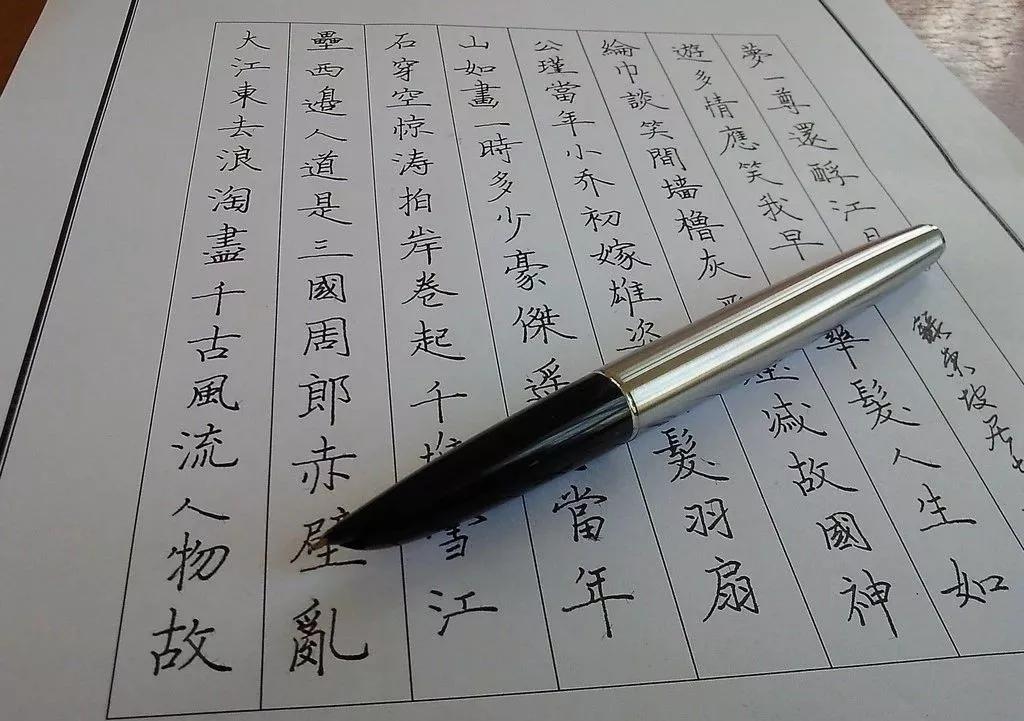 大江東去浪淘盡千古風流人物故
壘西邊人道是三國周郎赤壁亂
石穿空惊涛拍岸卷起千堆雪江
山如畫一時多少豪傑遥當年
公瑾當年小乔初嫁雄姿髮羽扇
綸巾談笑間墙櫓灰减故國神
遊多情應笑我早華髮人生如
夢一尊還酹江月
錄东坡居